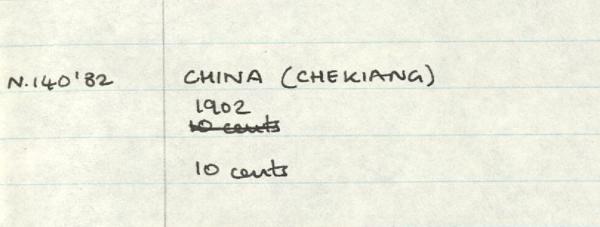 N.140'82 CHINA (CHEKIANG)
1902
10 cents
10 cents